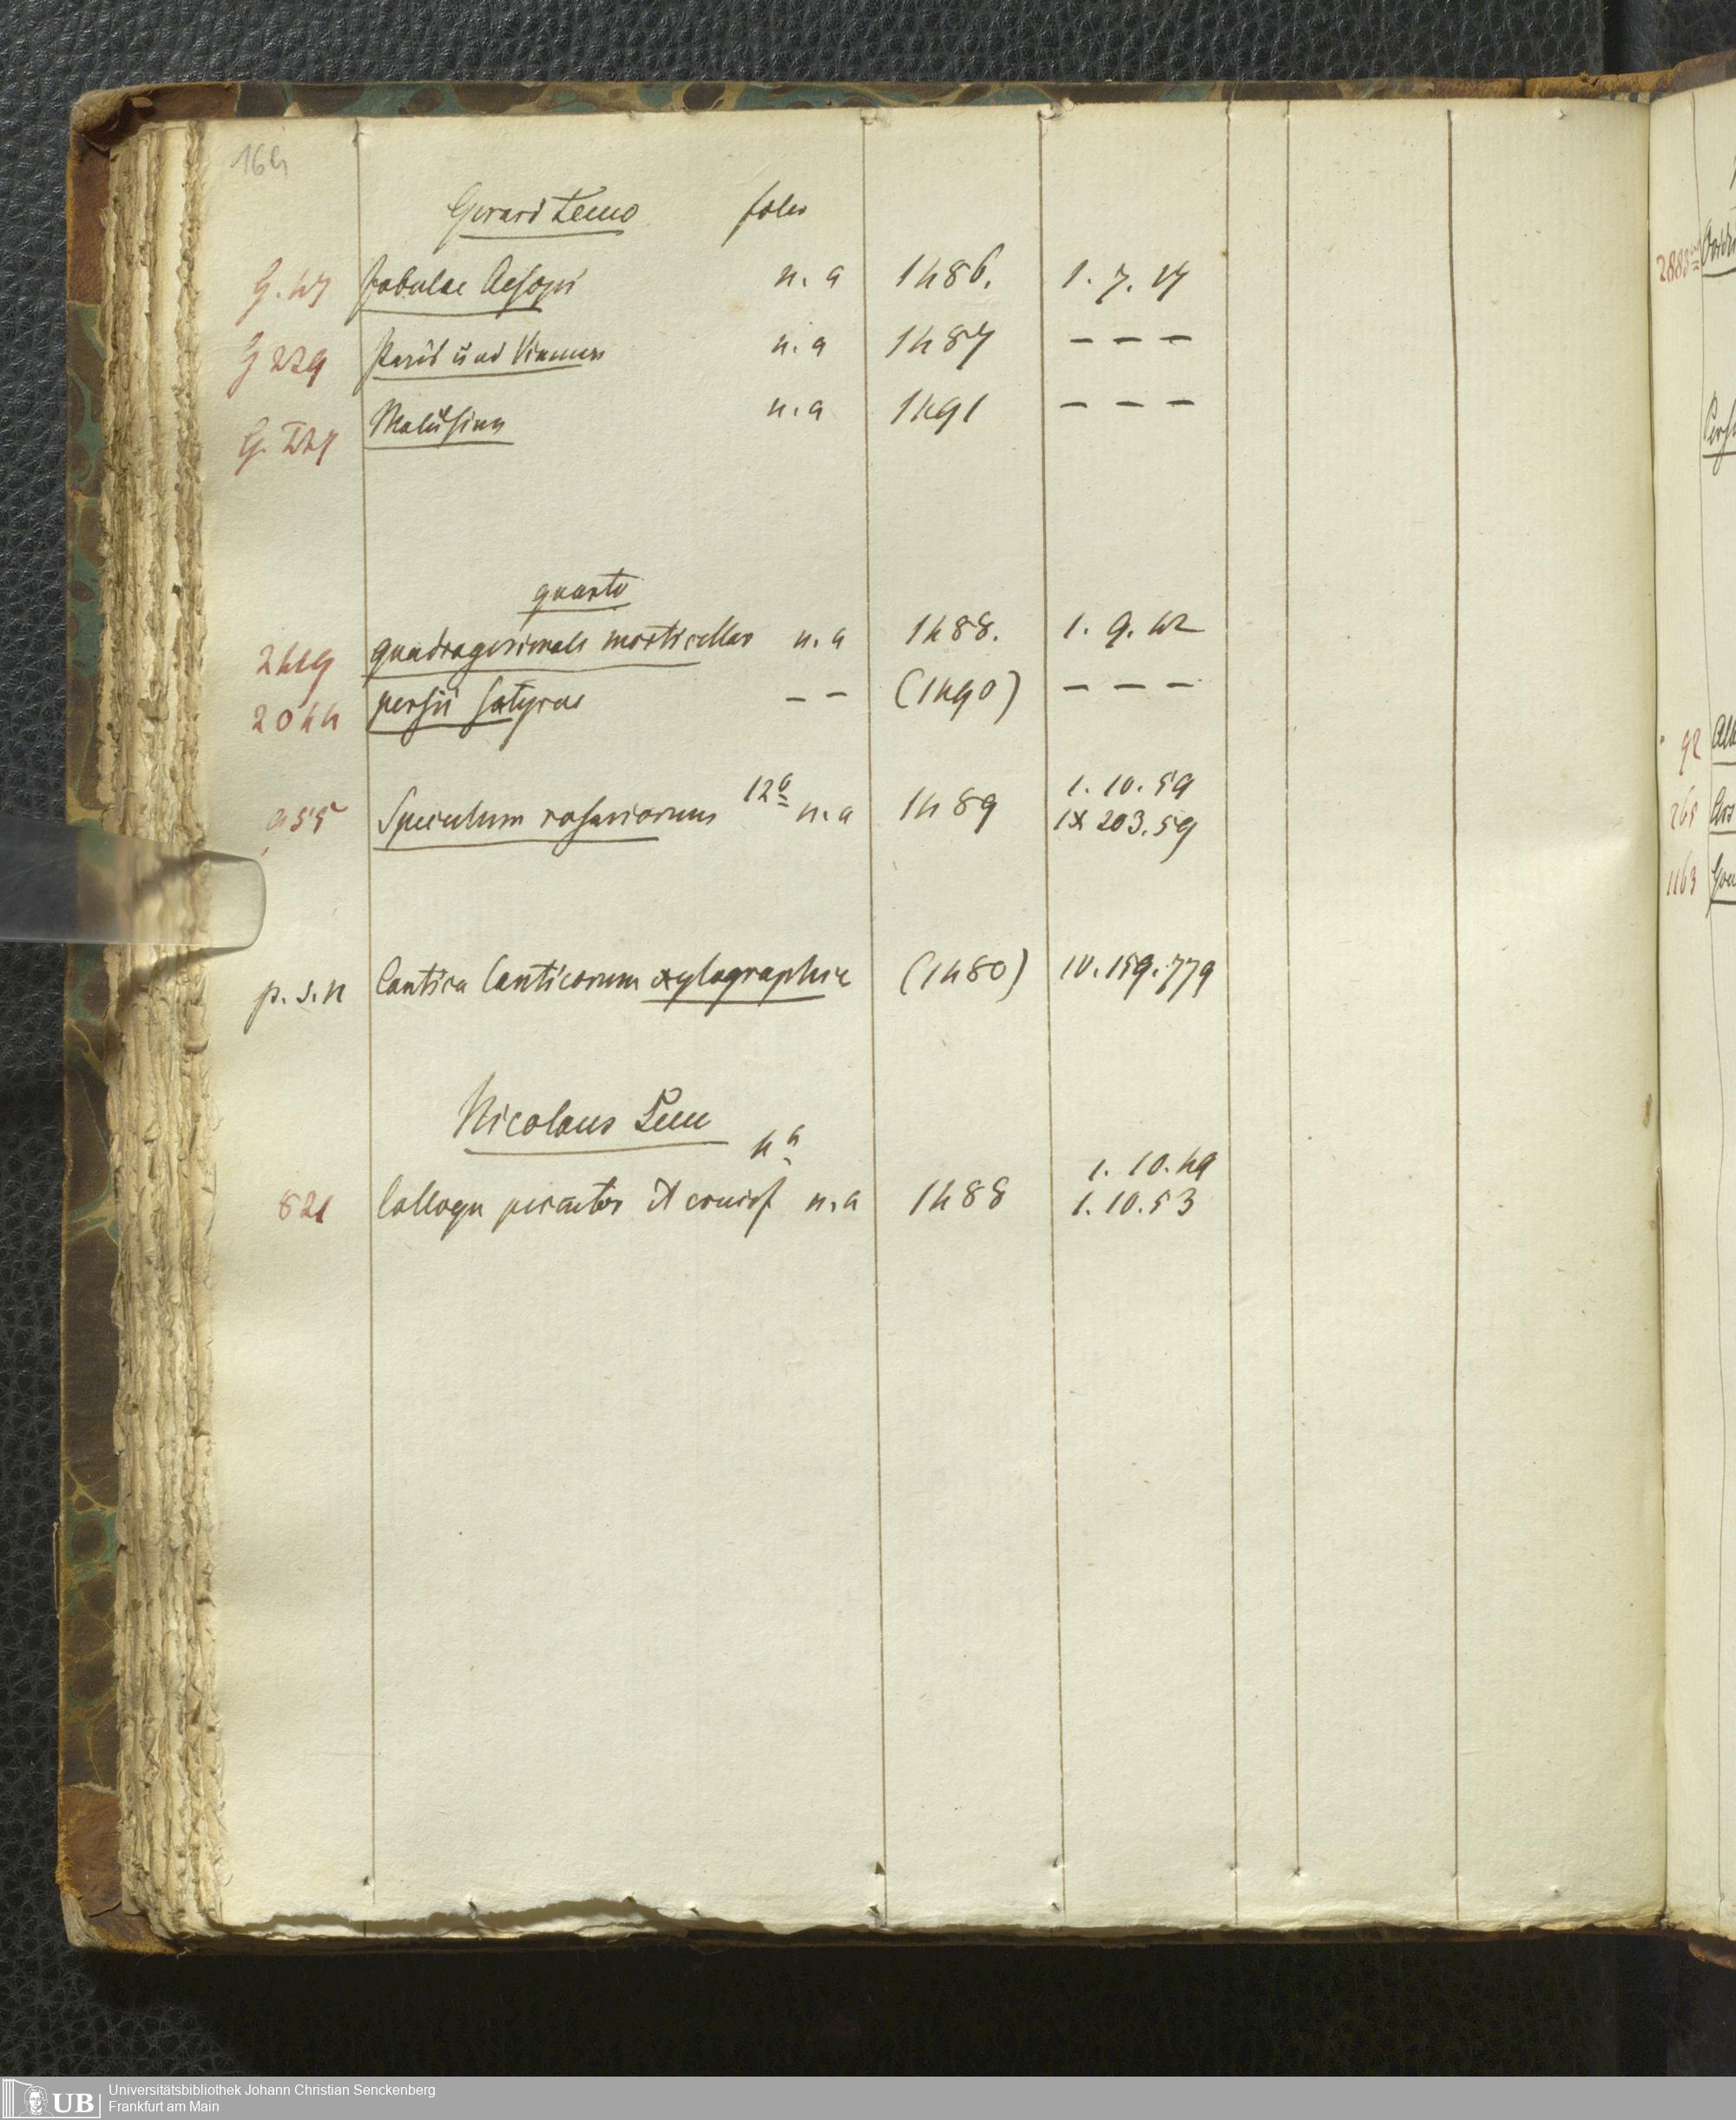 164
Gerard Leuo folio
G. 47 fabulae Aesopi n. a 1486. 1. 7. 17
G 229 Paris und Vienna n. a 1487 – – –
G. 224 Melusina n. a 1491 – – –
quarto
2419 quadragesimale morticellas n. a 1488. 1. 9. 42
2044 persii satyrae – – (1490) – – –
12º 1. 10. 59
955 Speculum rosariorum n. a 1489 IX 203. 59
p. s. n Cantica Canticorum xylographic (1480) IV. 159. 779
Nicolaus Leuu
4º 1. 10. 49
821 Colloqu peccator et crucif n. a 1488 1. 10. 53
2883
92
265 Ars
1163
UB Universitätsbibliothek Johann Christian Senckenberg
Frankfurt am Main